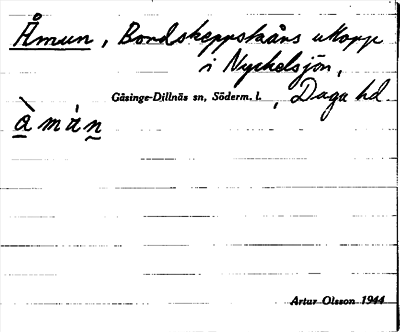 Åmun, Bondskeppskärs utlopp
i Nyckelsjön,
Gåsinge-Dillnäs sn, Söderm. l., Daga hd
à mùn
Artur Olsson 1944